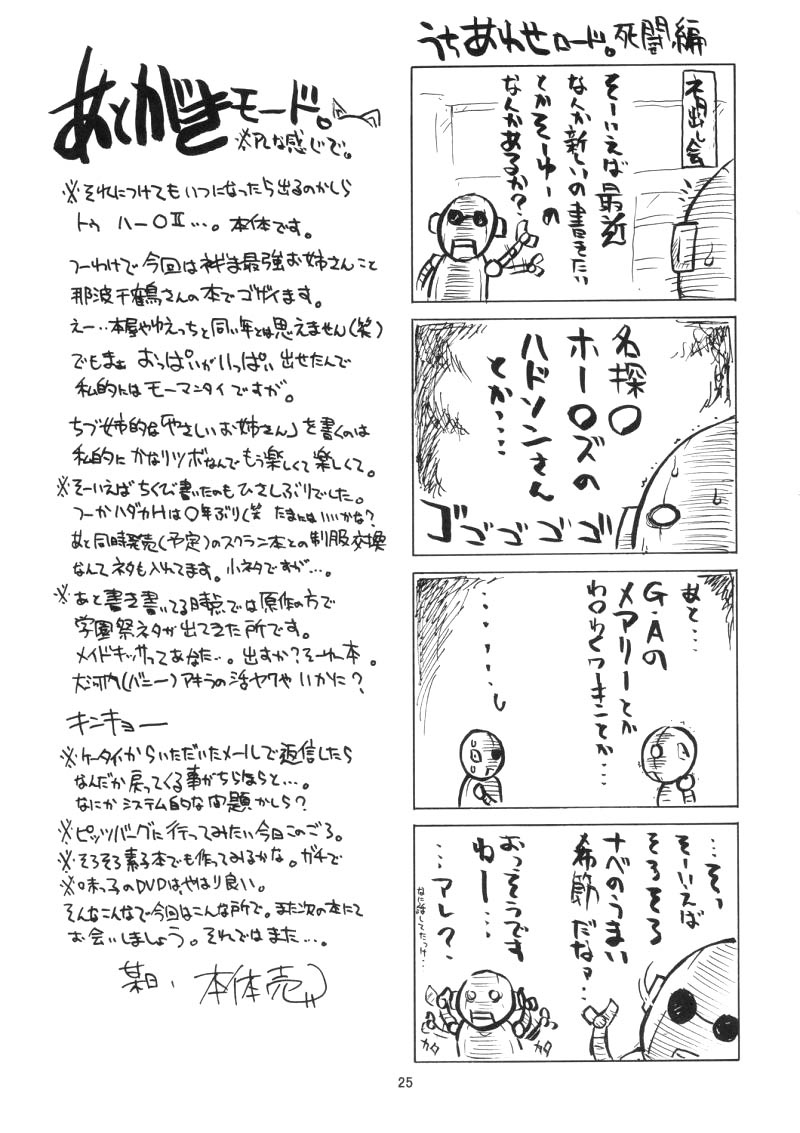 うちあわせロード。死闘編
ネタ出し会
そーいえば最近
なんか新しいの書きたい
とかそーゆーの
なんかあるか？
名探〇
ホー〇ズの
ハドソンさん
とか‥‥
ゴゴゴゴゴ
あと‥‥
G・Aの
メアリーとか
わ〇わくワーキンとか‥‥
‥‥‥‥
…そっ
そーいえば
そろそろ
ナベのうまい
季節だなァ‥‥
おっそうです
ねー‥‥
‥‥アレ？
なに話してたっけ‥‥
カタ
カタ
あとがきモード。
※PLな感じで。
※それにつけてもいつになったら出るのかしら
トゥ ハー〇Ⅱ‥‥。本体です。
つーわけで今回はネギま最強お姉さんこと
那波千鶴さんの本でゴザイます。
えー‥本屋やゆえっちと同い年とは思えません(笑)
でもまぁ おっぱいがいっぱい出せたんで
私的にはモーマンタイですが。
ちづ姉的な「やさしいお姉さん」を書くのは
私的にかなりツボなんでもう楽しくて楽しくて。
※そーいえばちくび書いたのもひさしぶりでした。
つーかハダカHは〇年ぶり(笑 たまにはいいかな？
あと同時発売(予定)のスクラン本との制服交換
なんてネタも入れてます。小ネタですが‥‥。
※あと書き書いてる時点では原作の方で
学園祭ネタが出てきた所です。
メイドキッサってあなた‥。出すか？そーゆー本。
大河内(バニー)アキラの活ヤクやいかに？
キンキョー
※ケータイからいただいたメールで返信したら
なんだか戻ってくる事がちらほらと‥‥。
なにかシステム的な問題かしら？
※ピッツバーグに行ってみたい今日このごろ。
※そろそろ素子本でも作ってみるかな。ガチで
※味っ子のDVDはやはり良い。
そんなこんなで今回はこんな所で。また次の本にて
お会いしましょう。それではまた‥‥。
某日、本体売
25